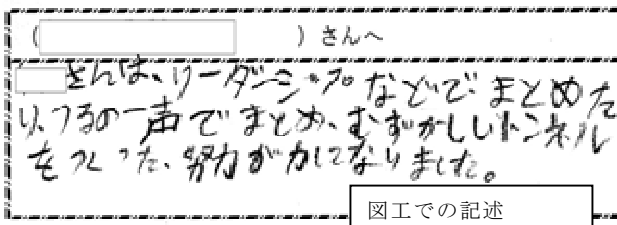 （　　　　　　　）さんへ
さんは、リーダーシップなどで、まとめた
り、つるの一声でまとめ、むずかしいトンネル
をつくった、努力が　なりました。
図工での記述